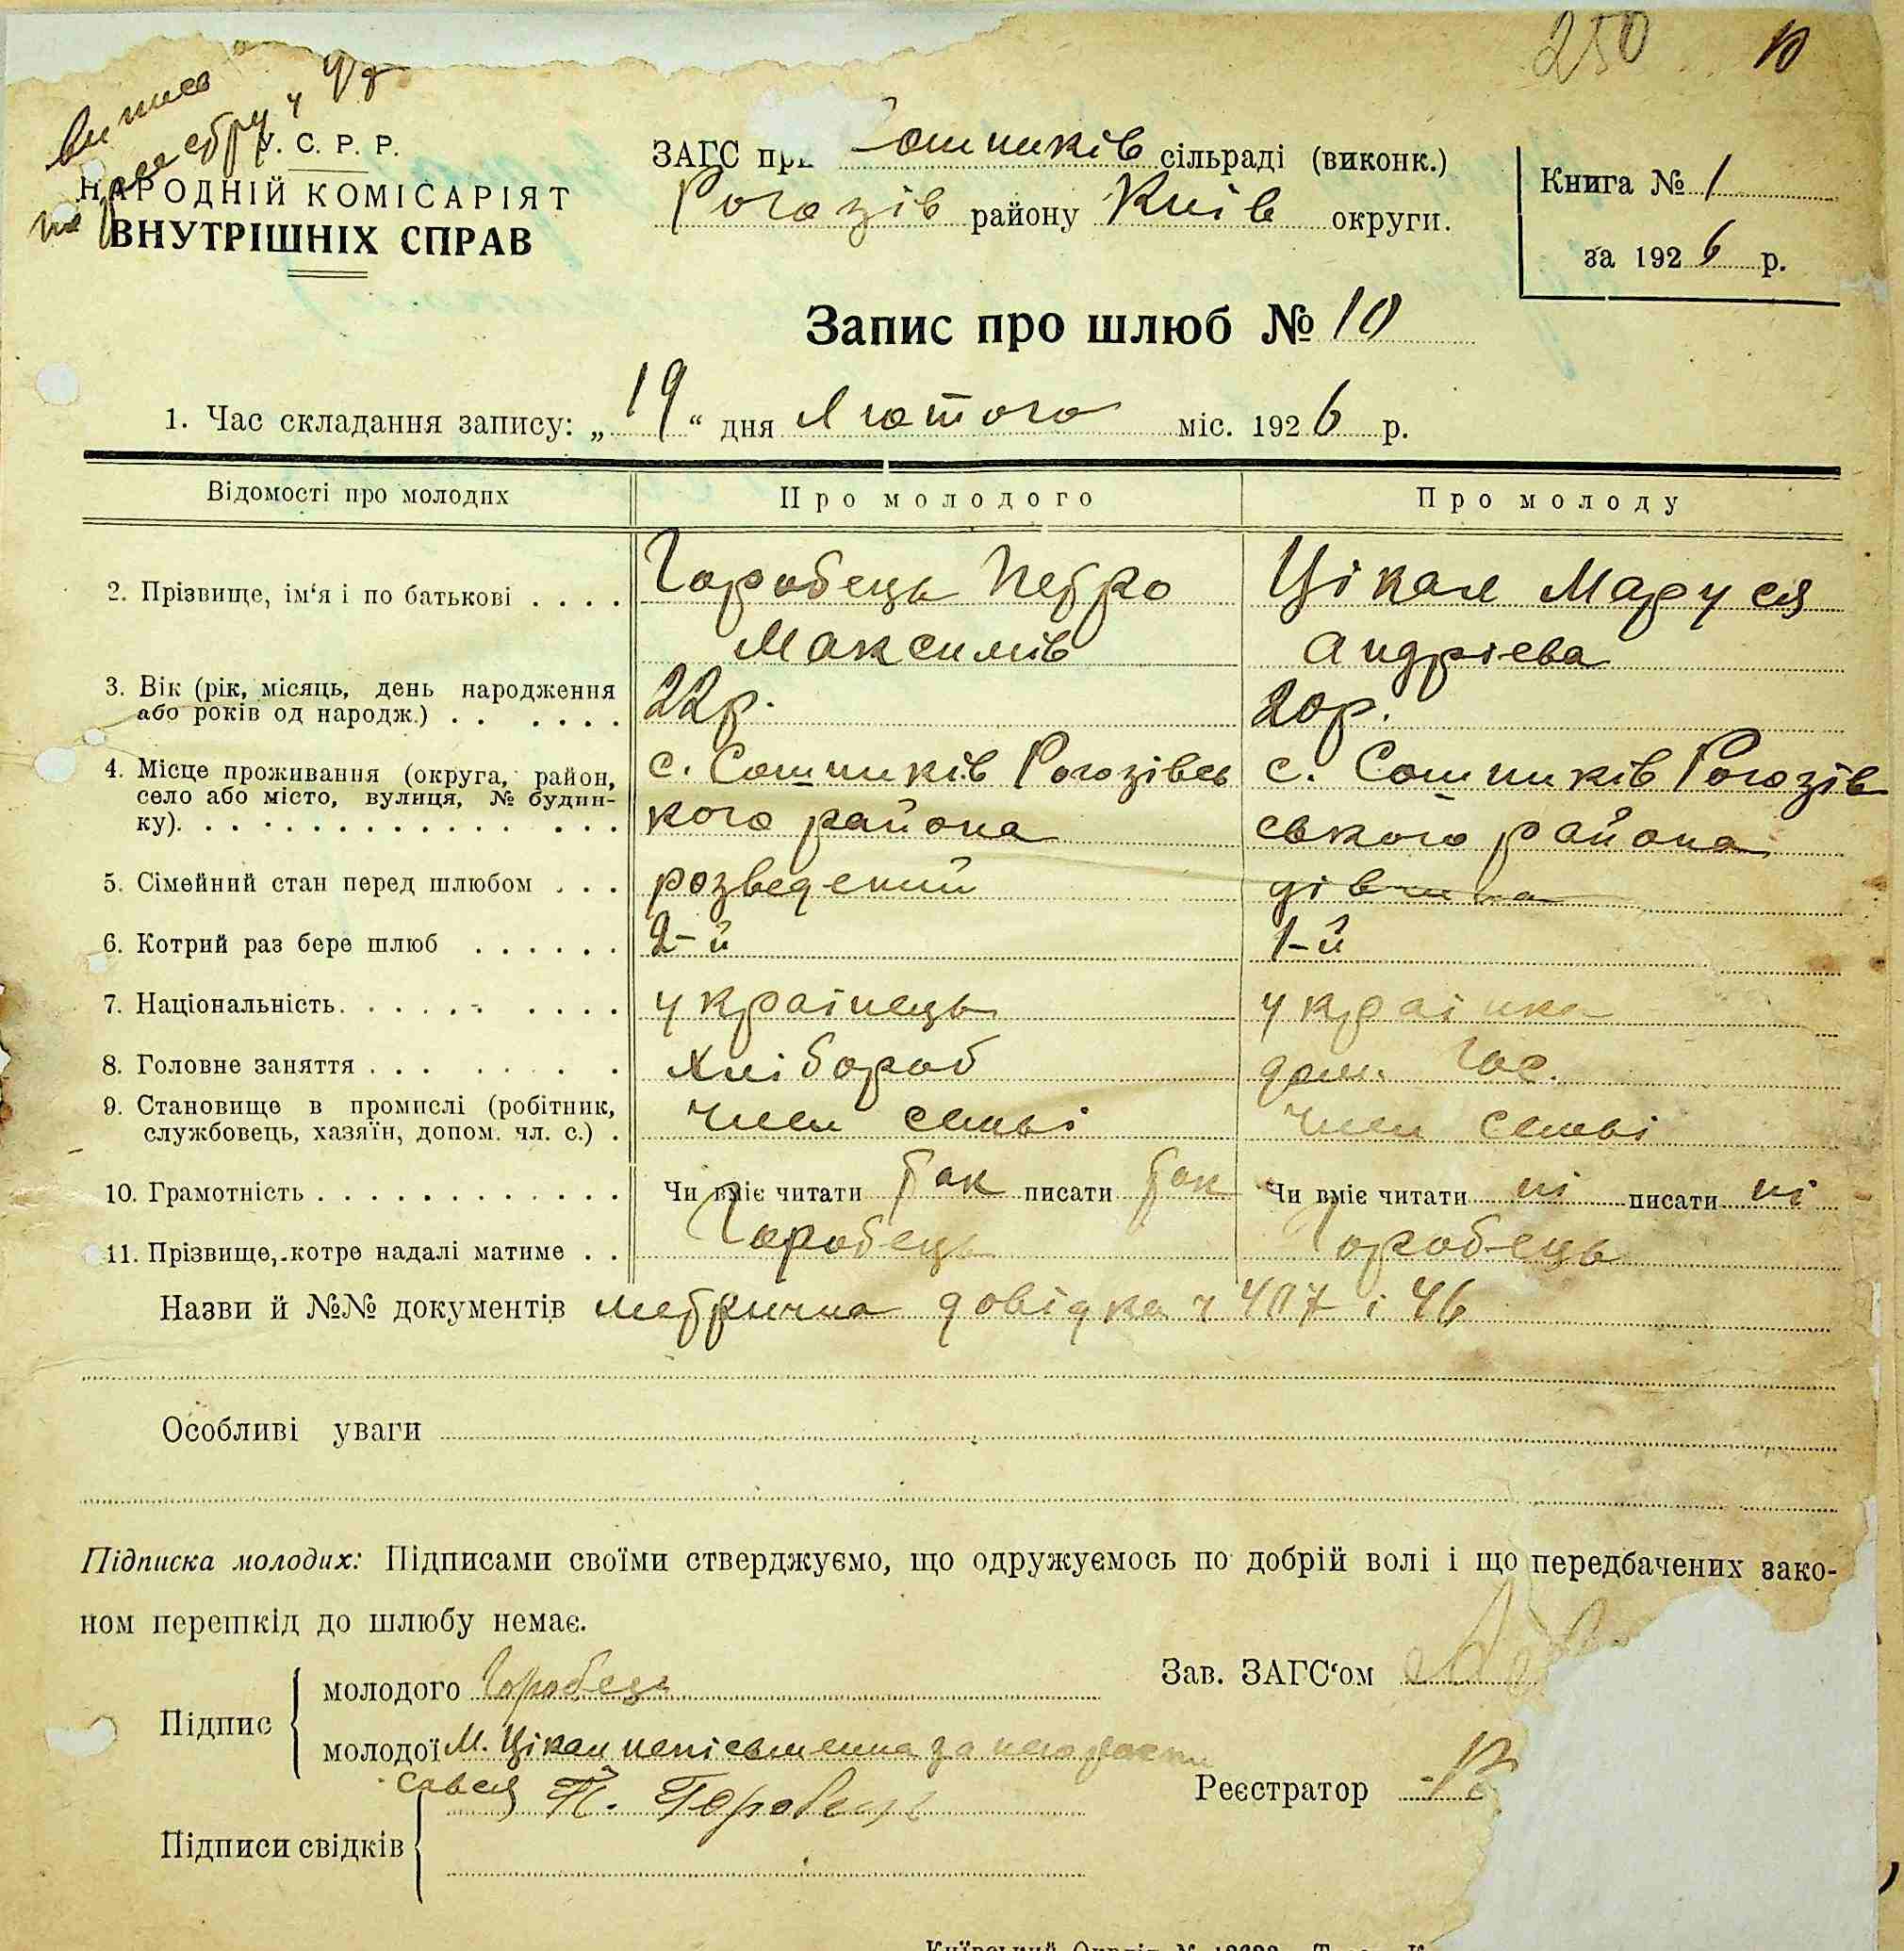 250 10
випис
У. С. Р. Р.
НАРОДНІЙ КОМІСАРІЯТ
ВНУТРІШНІХ СПРАВ
ЗАГС при Сошників сільраді (виконк.)
Рогозів району Київ округи.
Книга № 1
за 1926 р.
Запис про шлюб № 10
1. Час складання запису: „19“ дня Лютого міс. 1926 р.
Відомості про молодих Про молодого Про молоду
2. Прізвище, ім‘я і по батькові . . . . Горобець Петро Цікал Маруся
Максимів Андрієва
3. Вік (рік, місяць, день народження
або років од народж.) . . . . . . 22р. 20р.
4. Місце проживання (округа, район, с. Сошников Рогозівсь с. Сошников Рогозів
село або місто, вулиця, № будин-
ку). . . . . . . . . . . . . . . кого района ського района
5. Сімейний стан перед шлюбом . . . розведений дівчина
6. Котрий раз бере шлюб . . . . . . 2-й 1-й
7. Національність. . . . . . . . . . українець українка
8. Головне заняття . . . . . . . . Хлібороб дом. гос.
9. Становище в промислі (робітник,
службовець, хазяїн, допом. чл. с.) . член семьі член семьі
10. Грамотність . . . . . . . . . . . . Чи вміє читати так писати так Чи вміє читати ні писати ні
11. Прізвище, котре надалі матиме . . Горобець Горобець
Назви й №№ документів метрична довідка ч 407 і 46
Особливі уваги
Підписка молодих: Підписами своїми стверджуємо, що одружуємось по добрій волі і що передбачених зако-
ном перешкід до шлюбу немає.
Підпис
молодого Горобець
Зав. ЗАГС‘ом
молодої М. Цікал неписьменна за
Реєстратор
П. Горобець
Підписи свідків